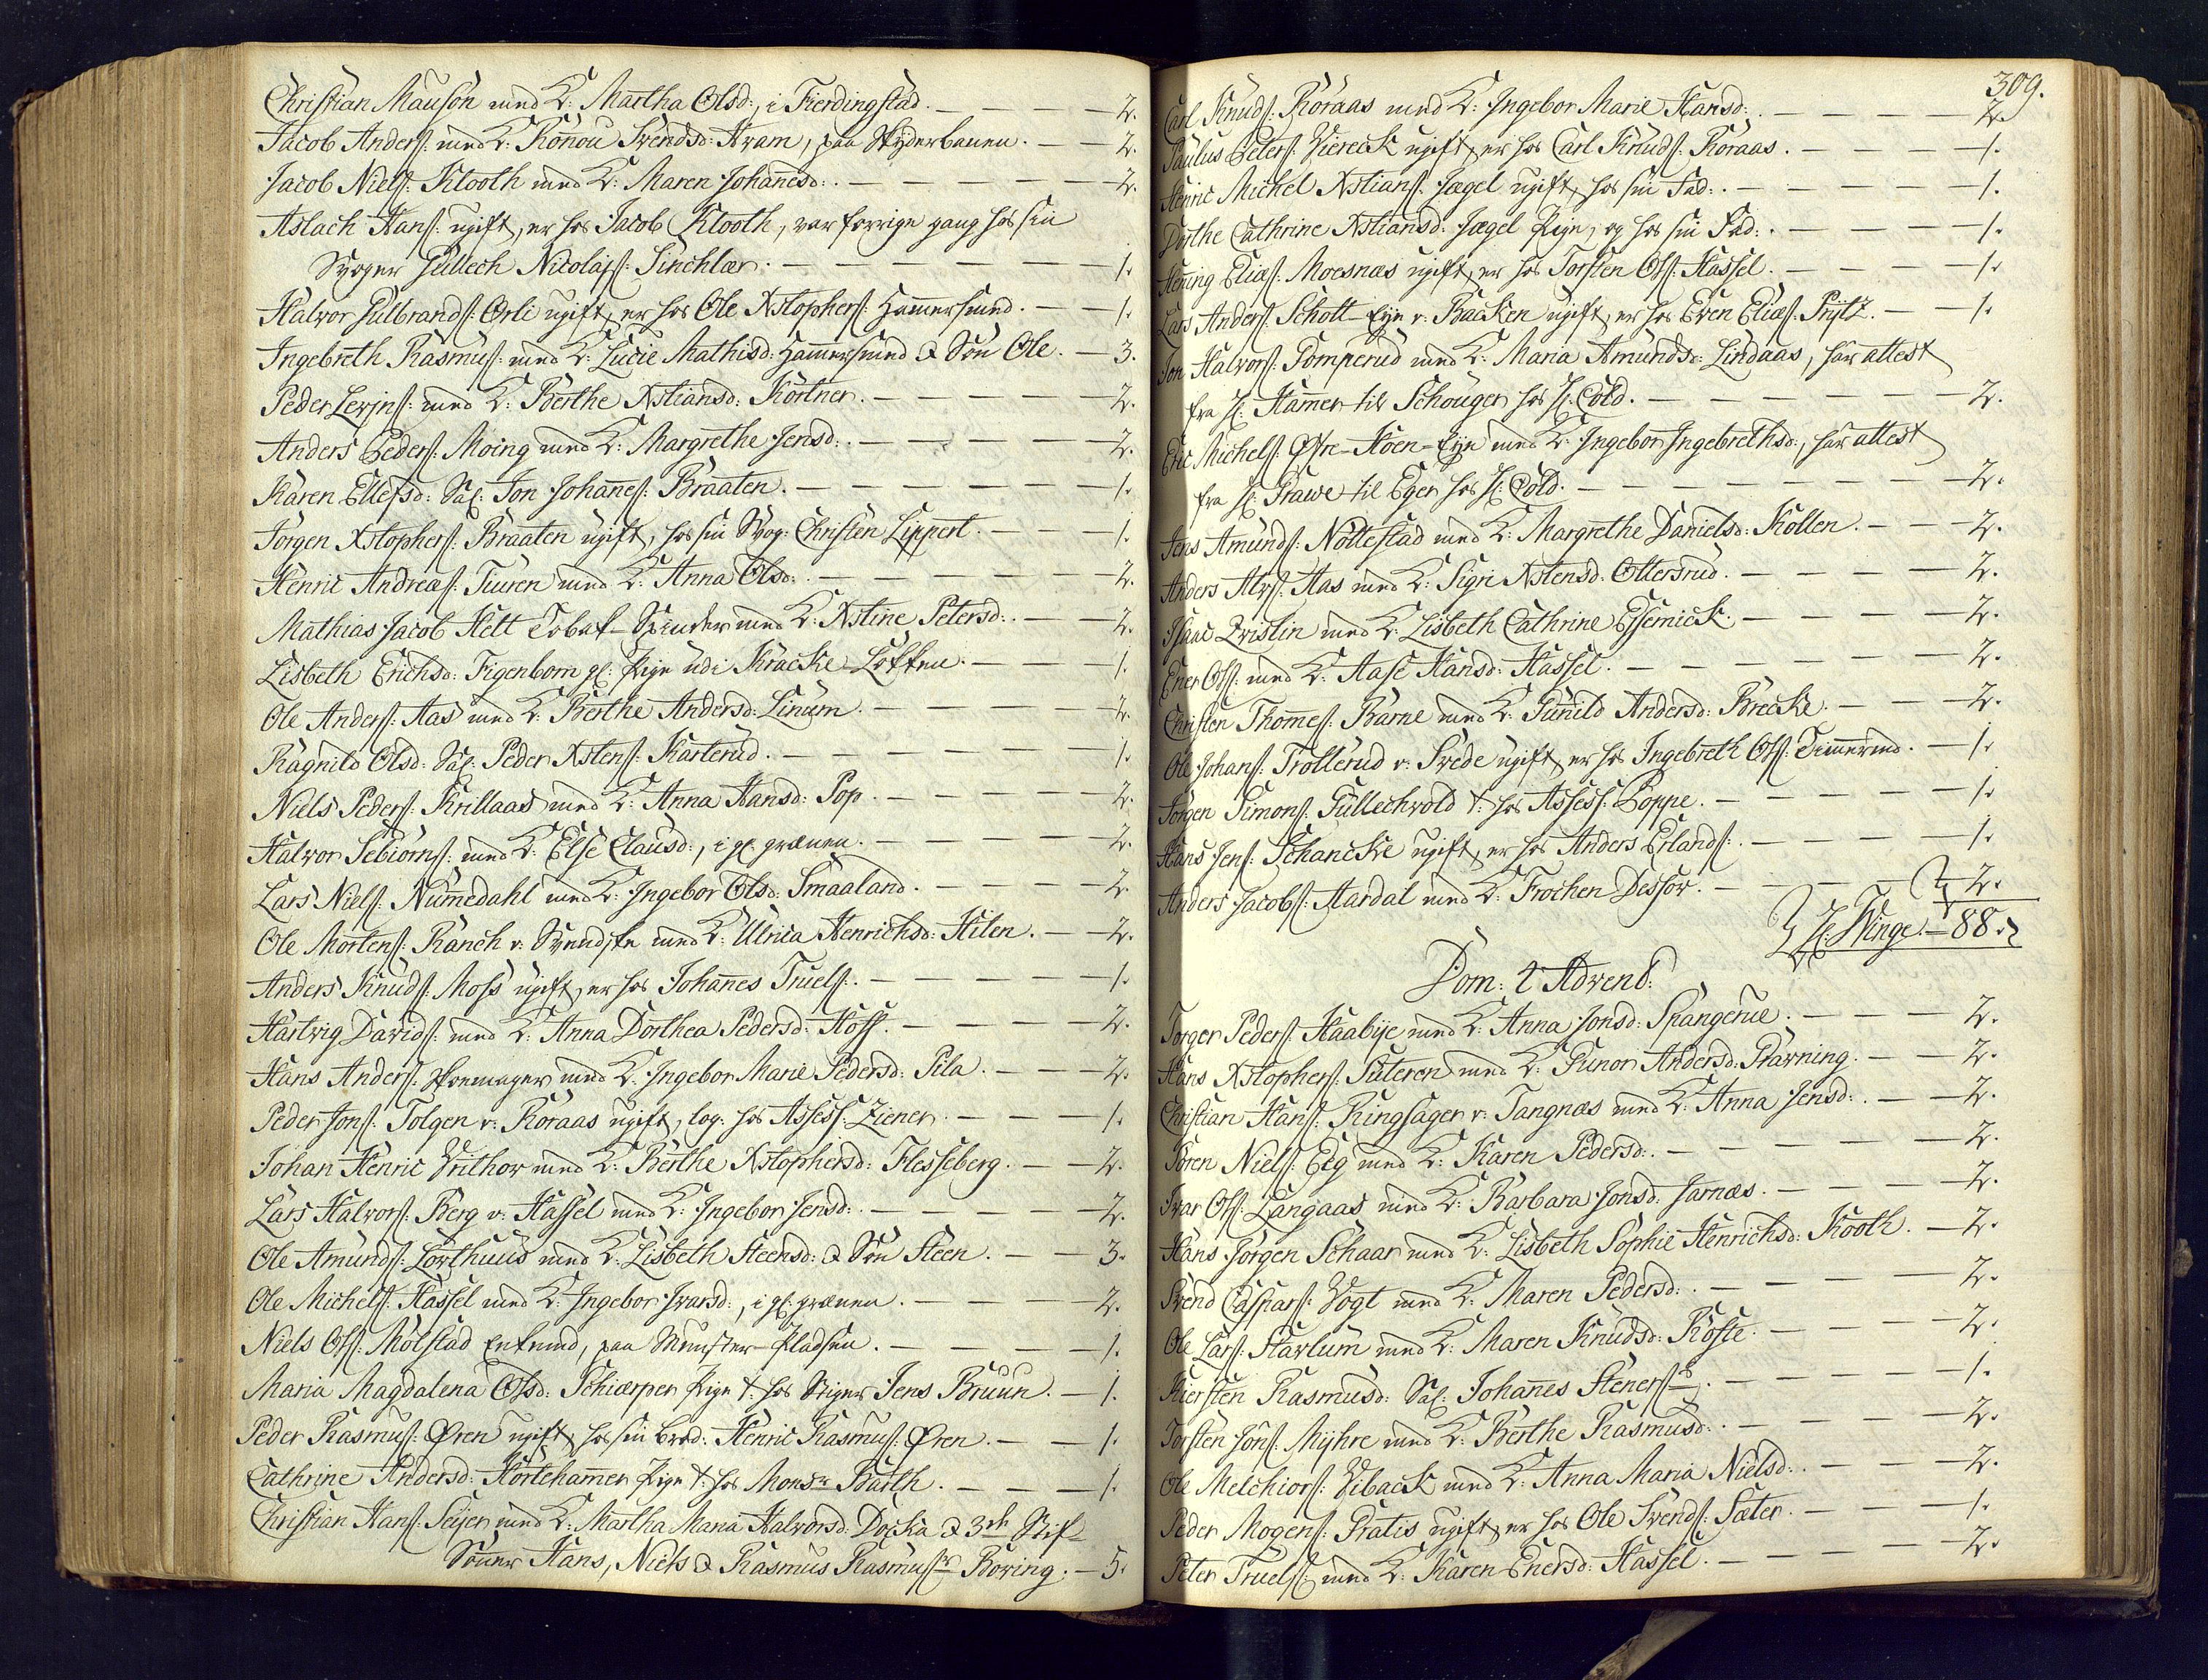 Christian Mauson med K: Martha Olsd:, i Fierdingstad. — 2.
Jacob Anders: med K: Ronou Svendsd: Aram, paa Skyderbanen. — 2.
Jacob Niels: Klooth med K: Maren Johanesd: — 2.
Aslach Hans: ugift, er hos Jacob Klooth, var forrige gang hos sin
Svoger Gullech Nicolajs: Sinchlær. — 1.
Halvor Gulbrands: Orli ugift, er hos Ole Xstophers: Hamersmed. — 1.
Ingebreth Rasmus: med K: Lucie Mathisd: Hamersmed & Søn Ole. — 3.
Peder Levjns: med K: Berthe Xstiansd: Kortner. — 2.
Anders Peders: Moing med K: Margrethe Jensd: — 2.
Karen Ellefsd: Sal: Jon Johanes: Braaten. — 1.
Jørgen Xstophers: Braaten ugift, hos sin Svog: Christen Lippert. — 1.
Henric Andreæs: Tiuren med K: Anna Olsd: — 2.
Mathias Jacob Helt Tobak-Spinder med K: Xstine Petersd: — 2.
Lisbeth Erichsd: Figenborn gl: Pige udi Kracke-Løkken. — 1.
Ole Anders: Aas med K: Berthe Andersd: Linum. — 2.
Ragnild Olsd: Sal: Peder Xstens: Karterud. — 1.
Niels Peders: Krillaas med K: Anna Hansd: Pop. — 2.
Halvor Sebiørns: med K: Else Clausd:, i gl: grænen. — 2.
Lars Niels: Numedahl med K: Ingebor Olsd: Smaaland. — 2.
Ole Mortens: Ranch v: Svendske med K: Ulrica Henrichsd: Hilen. — 2.
Anders Knuds: Moss ugift, er hos Johanes Truels: — 1.
Hartvig Davids: med K: Anna Dorthea Pedersd: Hoff. — 2.
Hans Anders: Skomager med K: Ingebor Marie Pedersd: Pila. — 2.
Peder Jons: Tolgen v: Roraas ugift, log: hos Assess: Ziener. — 1.
Johan Henric Vrithow med K: Berthe Xstophersd: Flesseberg. — 2.
Lars Halvors: Berg v: Hassel med K: Ingebor Jensd: — 2.
Ole Amunds: Lovthuus med K: Lisbeth Steensd: & Søn Steen. — 3.
Ole Michels: Hassel med K: Ingebor Ivarsd:, i gl: grænen. — 2.
Niels Ols: Molstad Enkemd, paa Munster-Pladsen. — 1.
Maria Magdalena Olsd: Schiærper Pige t: hos Stiger Jens Bruun. — 1.
Peder Rasmus: Øren ugift, hos sin brod: Henric Rasmus: Øren. — 1.
Cathrine Andersd: Hortehamer Pige t: hos Monsr Barth. — 1.
Christian Hans: Seijer med K: Martha Maria Halvorsd: Docka & 3de Stif-
Sønner Hans, Niels & Rasmus Rasmussr Boring. — 5.
309.
Carl Knuds: Roraas med K: Ingebor Marie Hansd: — 2.
Paulus Peters: Viereck ugift, er hos Carl Knuds: Roraas. — 1.
Henric Michel Xstians: Jægel ugift, hos sin Fad: — 1.
Dorthe Cathrine Xstiansd: Jægel Pige, og hos sin Fad: — 1.
Hening Elias: Moesnæs ugift, er hos Torsten Ols: Hassel. — 1.
Lars Anders: Schott-Eye v: Backen ugift, er hos Even Elias: Prytz. — 1.
Jon Halvors: Gomperud med K: Maria Amundsd: Lindaas, har attest
fra H: Hamer til Schouger hos H: Cold. — 2.
Eric Michels: Øvre-Hoen-Eye med K: Ingebor Ingebrethsd:, har attest
fra H: Grawe til Eger hos H: Cold. — 2.
Jens Amunds: Noltestad med K: Margrethe Danielsd: Kollen. — 2.
Anders Alfs: Aas med K: Sigri Xstensd: Ottersrud. — 2.
Isaac Qvistin med K: Lisbeth Cathrine Essemick. — 2.
Ener Ols: med K: Aase Hansd: Hassel. — 2.
Christen Thomes: Barne med K: Gunild Andersd: Brecke. — 2.
Ole Johans: Trollerud v: Svede ugift, er hos Ingebreth Ols: Tømermd. — 1.
Jørgen Simons: Gullechvold t: hos Assess: Poppe. — 1.
Hans Jens: Schancke ugift, er hos Anders Erlands: — 1.
Anders Jacobs: Aardal med K: Frochen Dessow. — 2.
H: Winge. — 88.
Dom: 2 Advent:
Torger Peders: Haabye med K: Anna Jonsd: Spangerue. — 2.
Hans Xstophers: Suteren med K: Gunor Andersd: Gravning. — 2.
Christian Hans: Ringsager v: Tangnæs med K: Anna Jensd: — 2.
Søren Niels: Eeg med K: Karen Pedersd: — 2.
Ivar Ols: Langaas med K: Barbara Jonsd: Jarnæs. — 2.
Hans Jørgen Schaar med K: Lisbeth Sophie Henrichsd: Kooth. — 2.
Svend Caspars: Vogt med K: Maren Pedersd: — 2.
Ole Lars: Starlum med K: Maren Knudsd: Roste. — 2.
Kiersten Rasmusd: Sal: Johanes Stenersd. — 1.
Torsten Jons: Myhre med K: Berthe Rasmusd: — 2.
Ole Melchiors: Viback med K: Anna Maria Nielsd: — 2.
Peder Mogens: Gratis ugift, er hos Ole Svends: Sæter. — 1.
Peter Truels: med K: Karen Enersd: Hassel. — 2.